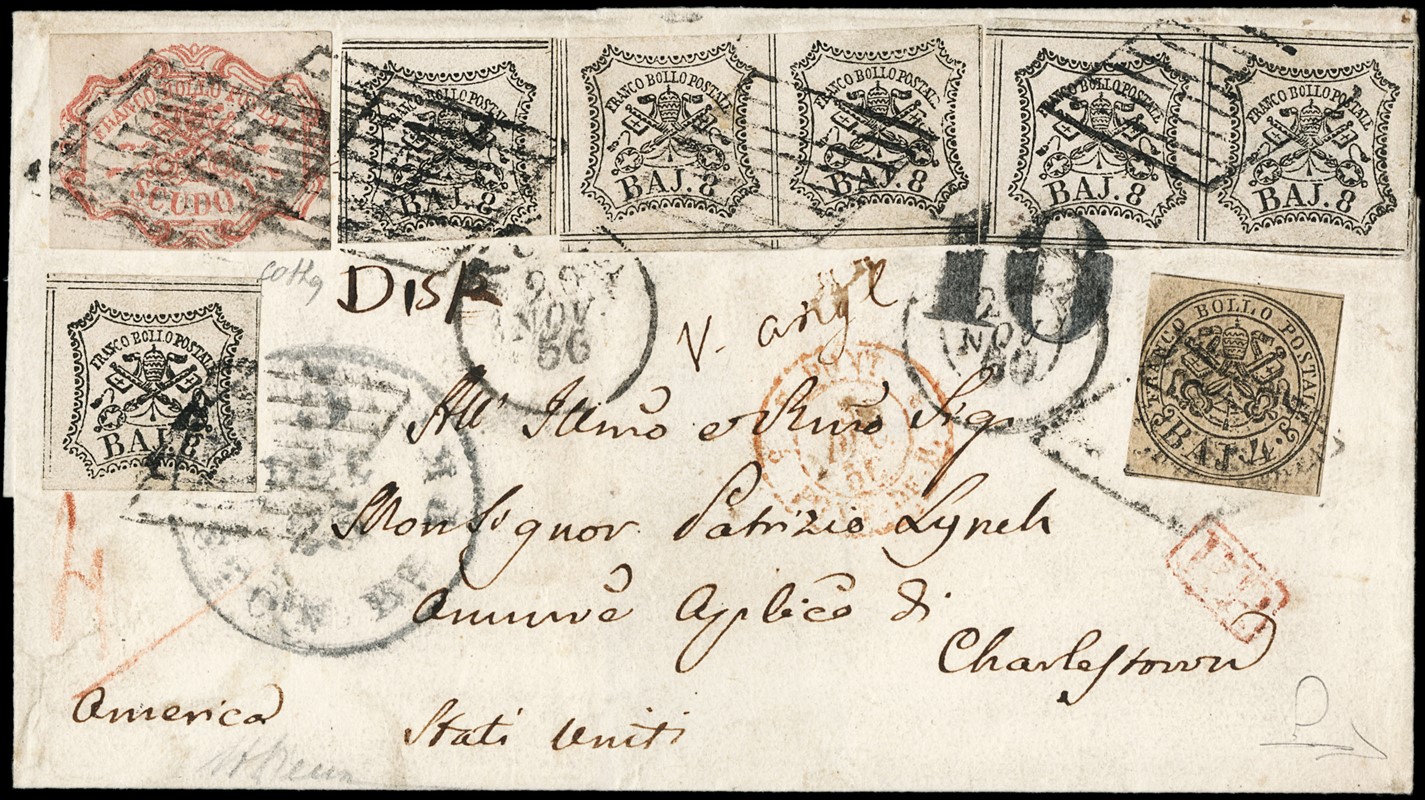 FRANCO BOLLO POSTALE
SCUDO 1
FRANCO BOLLO POSTALE
BAJ. 8
FRANCO BOLLO POSTALE
BAJ. 8
FRANCO BOLLO POSTALE
BAJ. 8
FRANCO BOLLO POSTALE
BAJ. 8
FRANCO BOLLO POSTALE
BAJ. 8
FRANCO BOLLO POSTALE
BAJ. 8
FRANCO BOLLO POSTALE
BAJ. 4
20
NOV
56
10
NOV
V. angl
All' Illmo e Rmo Sig
Monsignor Patrizio Lynch
Aplico di
Charlestown
America
Stati Uniti